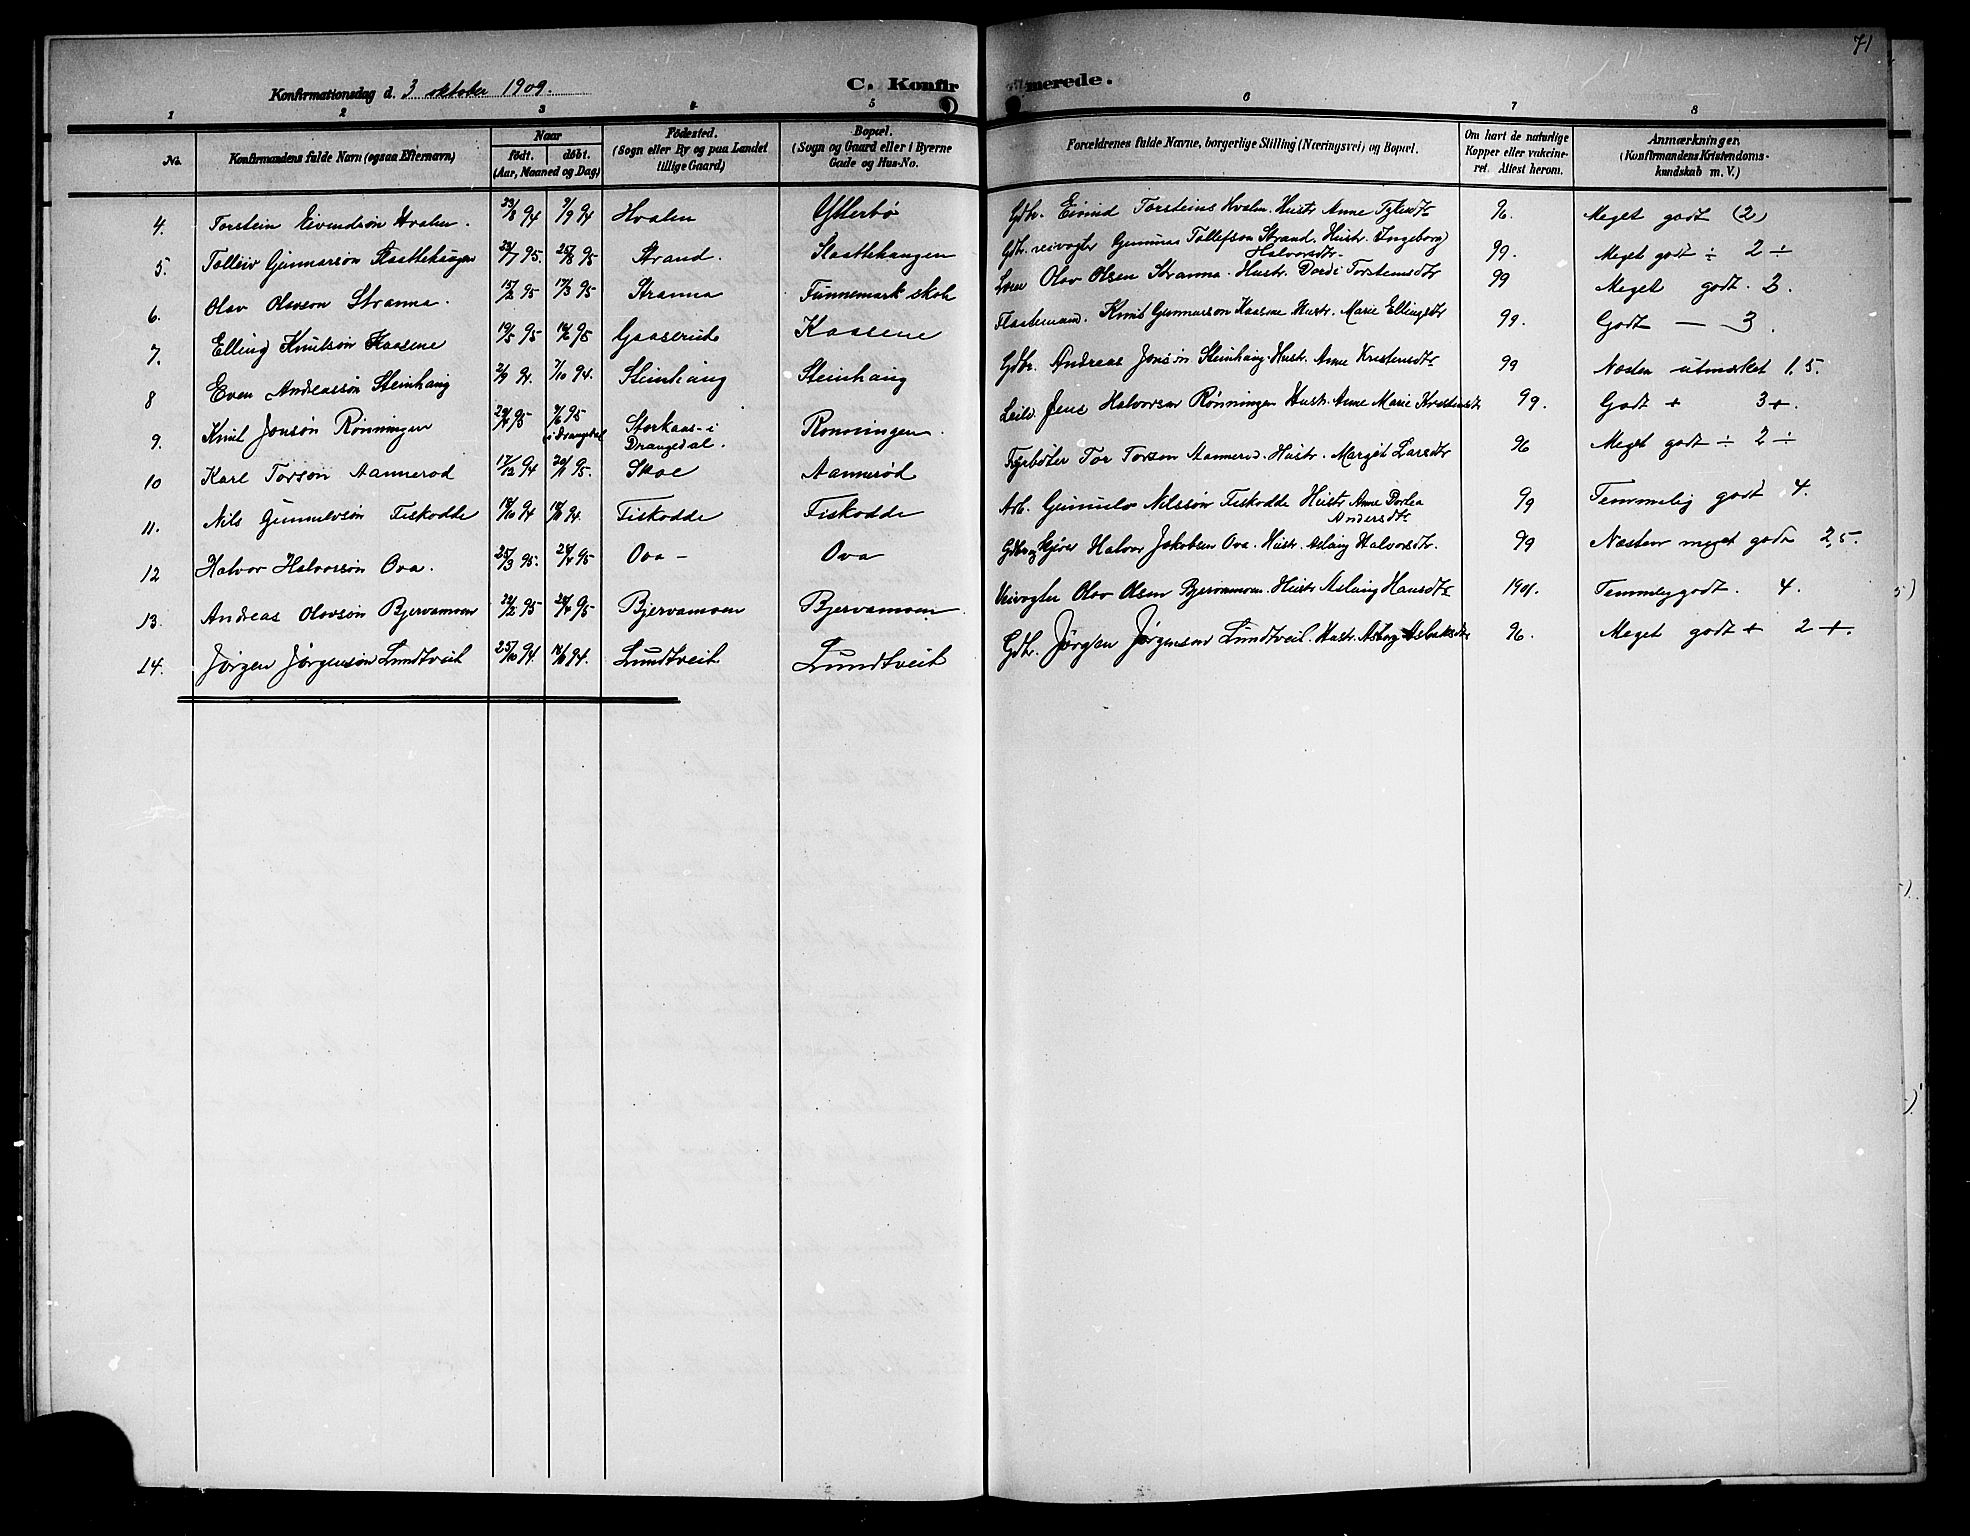 71
Konfirmationsdag d. 3 oktober 1909.
C. Konfirmerede.
1 2 3 4 5 6 7 8
No. Konfirmandens fulde Navn (ogsaa Efternavn) Naar födt. döbt. (Aar, Maaned og Dag) Födested. (Sogn eller By og paa Landet tillige Gaard) Bopæl. (Sogn og Gaard eller i Byerne Gade og Hus-No. Forældrenes fulde Navne, borgerlige Stilling (Næringsvei) og Bopæl. Om havt de naturlige Kopper eller vakcineret. Attest herom. Anmærkninger. (Konfirmandens Kristendomskundskab m. V.)
4. Torstein Eivindsön Hvalen. 23/8 94 9/9 94 Hvalen Ytterbö Gdbr. Eivind Torsteins Hvalen. Hustr. Anne 96. Meget godt (2)
5. Tolleiv Gunnarsön Slaattehaugen 23/7 95. 25/8 95 Strand. Slaattehaugen Gdbr. veivogter Gunnar Tollefson Strand. Hustr. Ingeborg Halvorsdtr. 99. Meget godt ÷ 2 ÷
6. Olav Olavson Stranna. 15/2 95 17/3 95 Stranna Funnemark skole Olav Olsen Stranna. Hustr. Dordi Torsteinsdtr 99 Meget godt. 2.
7. Elling Knutsön Kaasene 19/5 95 16/6 95 Gaaserud Kaasene Knut Gunnarson Kaasene Hustr. Marie Ellingsdtr 99. Godt — 3.
8 Even Andreassön Steinhaug 2/9 94. 7/10 94. Steinhaug Steinhaug Gdbr. Andreas Jonsön Steinhaug. Hustr. Anne Kristensdtr 99 Næsten utmærket 1,5.
9. Knut Jonsön Rönningen 95 95 i Drangedal Storkaas i Drangedal. Rönningen. Jens Halvorsen Rönningen Hustr. Anne Marie 99. Godt + 3+.
10 Karl Torson Aannerod 17/12 94 95. Skoe Aanneröd Fyrböter Tor Torsen Aannerød. Hustr. Margit Larsdtr 96 Meget godt ÷ 2 ÷
11. Nils Gunnulvsön Fiskodde 18/10 94 94. Fiskodde Fiskodde Arb. Gunnulv Nilssön Fiskodde Hustr Anne Dorlea Andersdtr 99 Temmelig godt 4.
12 Halvor Halvorsön Ova. 25/3 95. 28/4 95 Ova - Ova Halvor Jakobsen Ova. Hustr. Aslaug Halvorsdtr. 99 Næsten meget godt 2,5.
13. Andreas Olavsön Bjervamoen 22/2 95 95 Bjervamoen Bjervamoen. Veivogter Olav Olsen Bjervamoen. Hustr Aslaug Hansdtr 1901. Temmeliggodt. 4.
14. Jörgen Jörgensön Lundtveit 25/10 94. 94. Lundtveit Lundtveit Gdbr. Jörgen Jörgenson Lundtveit. Hustr. Asborg Aslaksdtr 96. Meget godt + 2 +.